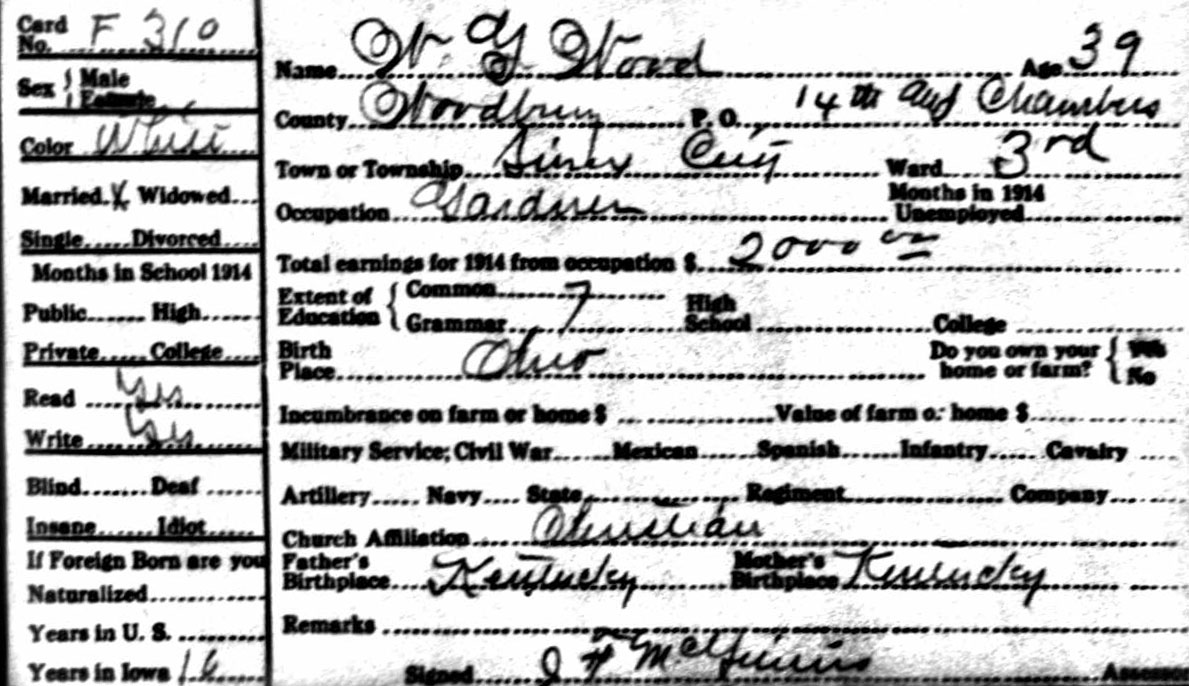 Card No. F 310
Sex { Male Female
Color White
Married X Widowed
Single Divorced
Months in School 1914
Public High
Private College
Read Yes
Write Yes
Blind Deaf
Insane Idiot
If Foreign Born are you
Naturalized
Years in U. S.
Years in Iowa 16
Name W. G. Wood Age 39
County Woodbury P. O. 14th and Chambers
Town or Township Sioux City Ward 3rd
Occupation Gardner Months in 1914 Unemployed
Total earnings for 1914 from occupation $ 2000 00
Extent of Education { Common 7
Grammar High School College
Birth Place Ohio Do you own your home or farm? { Yes No
Incumbrance on farm or home $ Value of farm or home $
Military Service; Civil War Mexican Spanish Infantry Cavalry
Artillery Navy State Regiment Company
Church Affiliation Christian
Father's Birthplace Kentucky Mother's Birthplace Kentucky
Remarks
Signed J F McGinnis Assessor